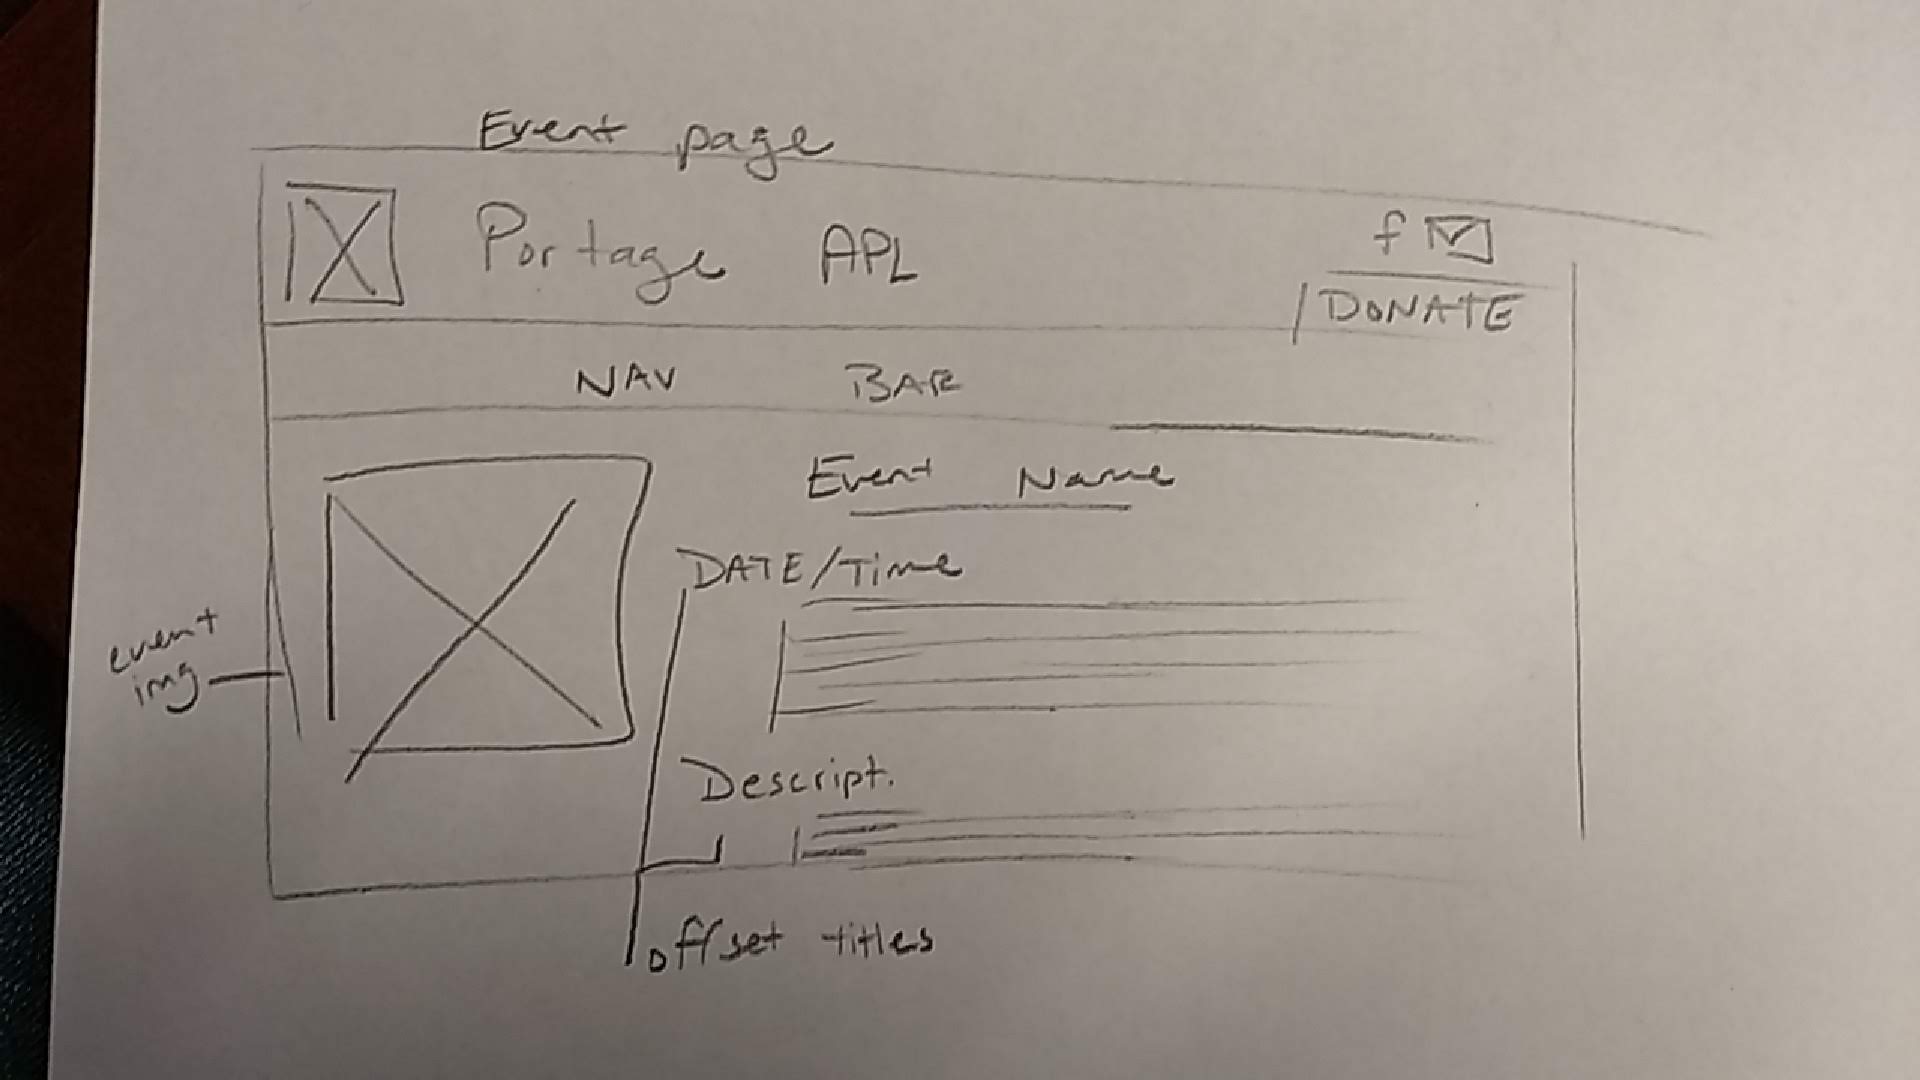 Event page
Portage APL
f
DONATE
NAV BAR
Event Name
DATE/Time
event
img
Descript.
offset titles